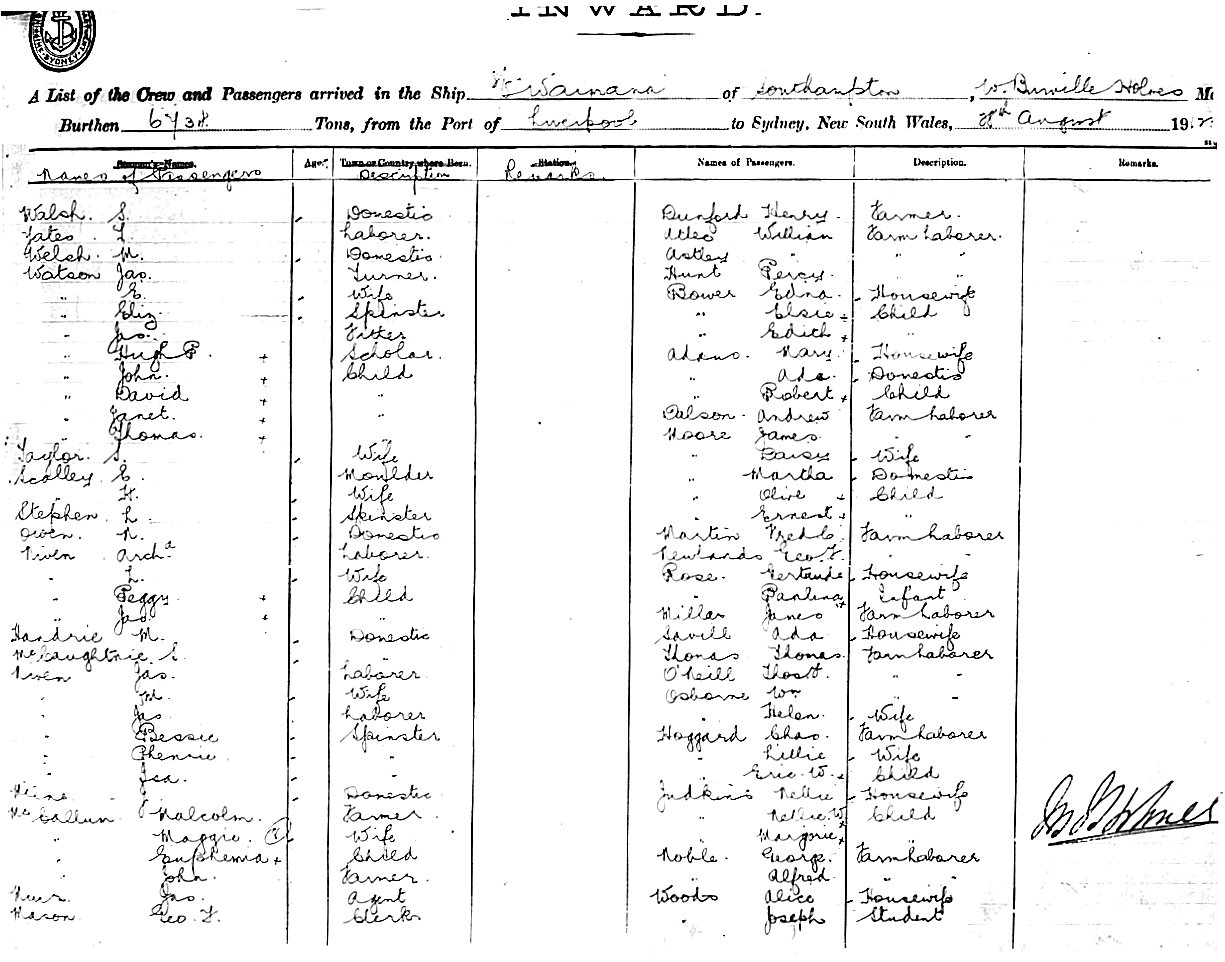 INWARD.
SYDNEY
A List of the Crew and Passengers arrived in the Ship Waimana of Southampton, W. Burville Holmes
Burthen Tons, from the Port of Liverpool to Sydney, New South Wales, August 191
Seaman's Names. Age. Town or Country where Born. Station. Names of Passengers. Description. Remarks.
Names of Passengers Description Remarks.
Walsh. S. Domestic Dunford Henry. Farmer.
Yates Laborer. William Farm Laborer.
Welsh. M. Domestic. Astley " "
Watson Jas. Turner. Hunt Percy. " "
" E. Wife Bower Edna. Housewife
" Eliz. Spinster " Elsie + Child
" Jas. Fitter " Edith + "
" Hugh P. + Scholar. Adams. Mary. Housewife
" John. + Child " Ada. Domestic
" David + " " Robert + Child
" Janet. + " Andrew Farm Laborer
" Thomas. + Moore James. " "
Taylor. S. Wife " Daisy Wife
Scolley E. Moulder " Martha Domestic
" H. Wife " Olive + Child
Stephen. L. Spinster " Ernest + "
Owen. N. Domestic Martin Fredk. Farm Laborer
Niven Archd. Laborer. Newlands Geo. F.
" L. Wife Rose. Gertrude Housewife
" Peggy. + Child " Paulina + Infant
" Jas. + " Millar James Farm Laborer
Handrie M. Domestic Savill Ada. Housewife
McCaughtrie. S. Thomas Thomas. Farm Laborer
Niven Jas. Laborer. O'Neill " "
" M. Wife Osborne Wm " "
" Jas. Laborer " Helen. Wife
" Bessie Spinster Hoggard Chas. Farm Laborer
" " " Lillie Wife
" " " Eric W. + Child
Domestic Judkins Nellie Housewife
McCallum. Malcolm. Farmer " Nellie W. + Child
" Maggie. Wife " Marjorie + "
" Euphemia + Child Noble. George. Farm Laborer
" John. Farmer. " Alfred "
Muir. Jas. Agent Woods Alice Housewife
Mason Geo. F. Clerk " Joseph Student